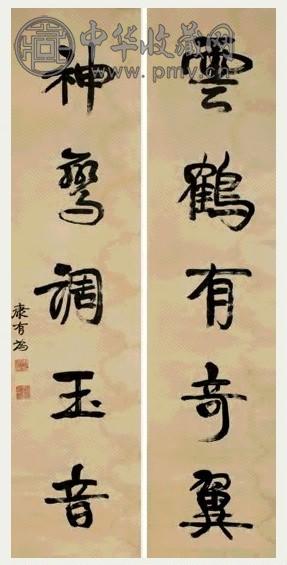 中华收藏网
www.pmv.cn
雲鶴有奇翼
神鸞調玉音
康有為